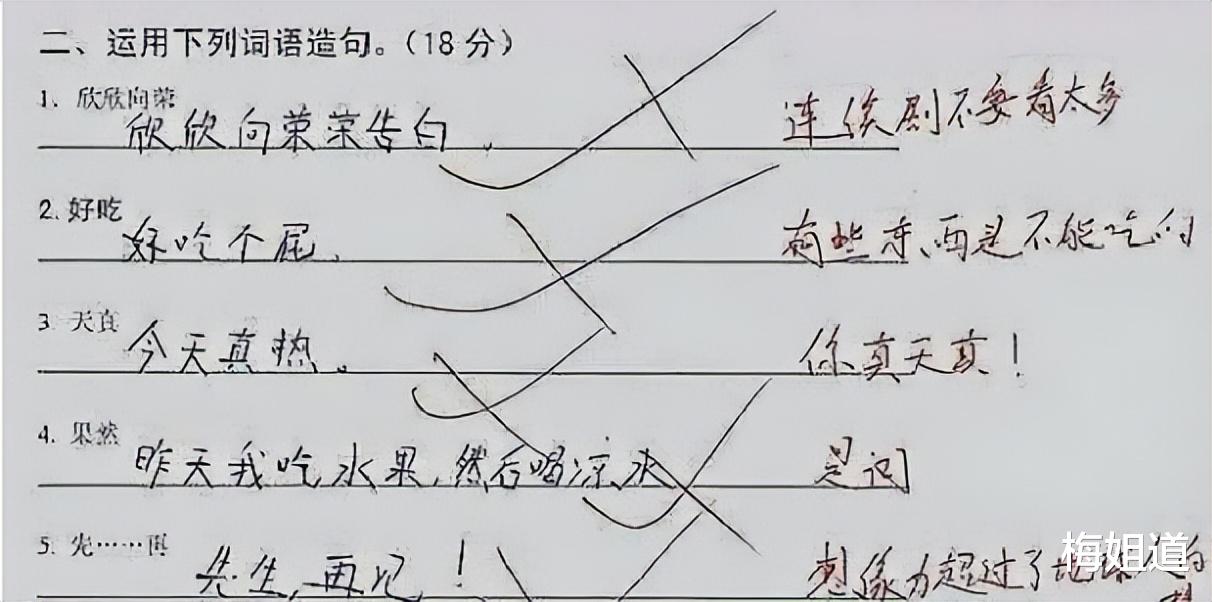 二、运用下列词语造句。（18分）
1. 欣欣向荣
欣欣向荣荣告白。 连续剧不要看太多
2. 好吃
好吃个屁。 有些东西是不能吃的
3. 天真
今天真热。 你真天真！
4. 果然
昨天我吃水果，然后喝凉水 是词
5. 先……再
先生，再见！ 想像力超过了地球
梅姐道